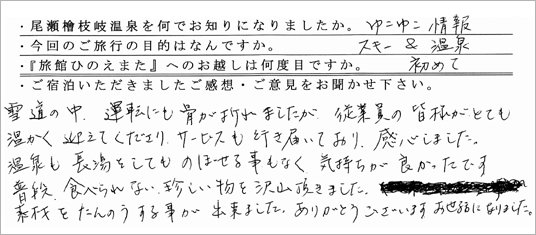 ・尾瀬檜枝岐温泉を何でお知りになりましたか。 ゆこゆこ情報
・今回のご旅行の目的はなんですか。 スキー & 温泉
・『旅館ひのえまた』へのお越しは何度目ですか。 初めて
・ご宿泊いただきましたご感想・ご意見をお聞かせ下さい。
雪道の中、運転にも骨が折れましたが、従業員の皆様がとても
温かく迎えてくださり、サービスも行き届いており、感心しました。
温泉も長湯をしてものぼせる事もなく、気持ちが良かったです
普段、食べられない珍しい物を沢山頂きました。
素材をたんのうする事が出来ました。ありがとうございます お世話になりました。